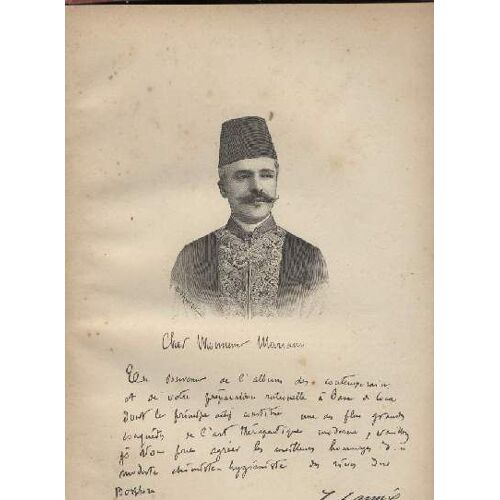 Cher Monsieur Mariani
En souvenir de l'album des contemporains
et de votre préparation rationnelle à base de coca
dont le principe actif constitue une des plus grandes
conquêtes de l'art thérapeutique moderne, veuillez
je vous prie agréer les meilleurs hommages d'un
modeste chimiste hygiéniste des rives du
Bosphore